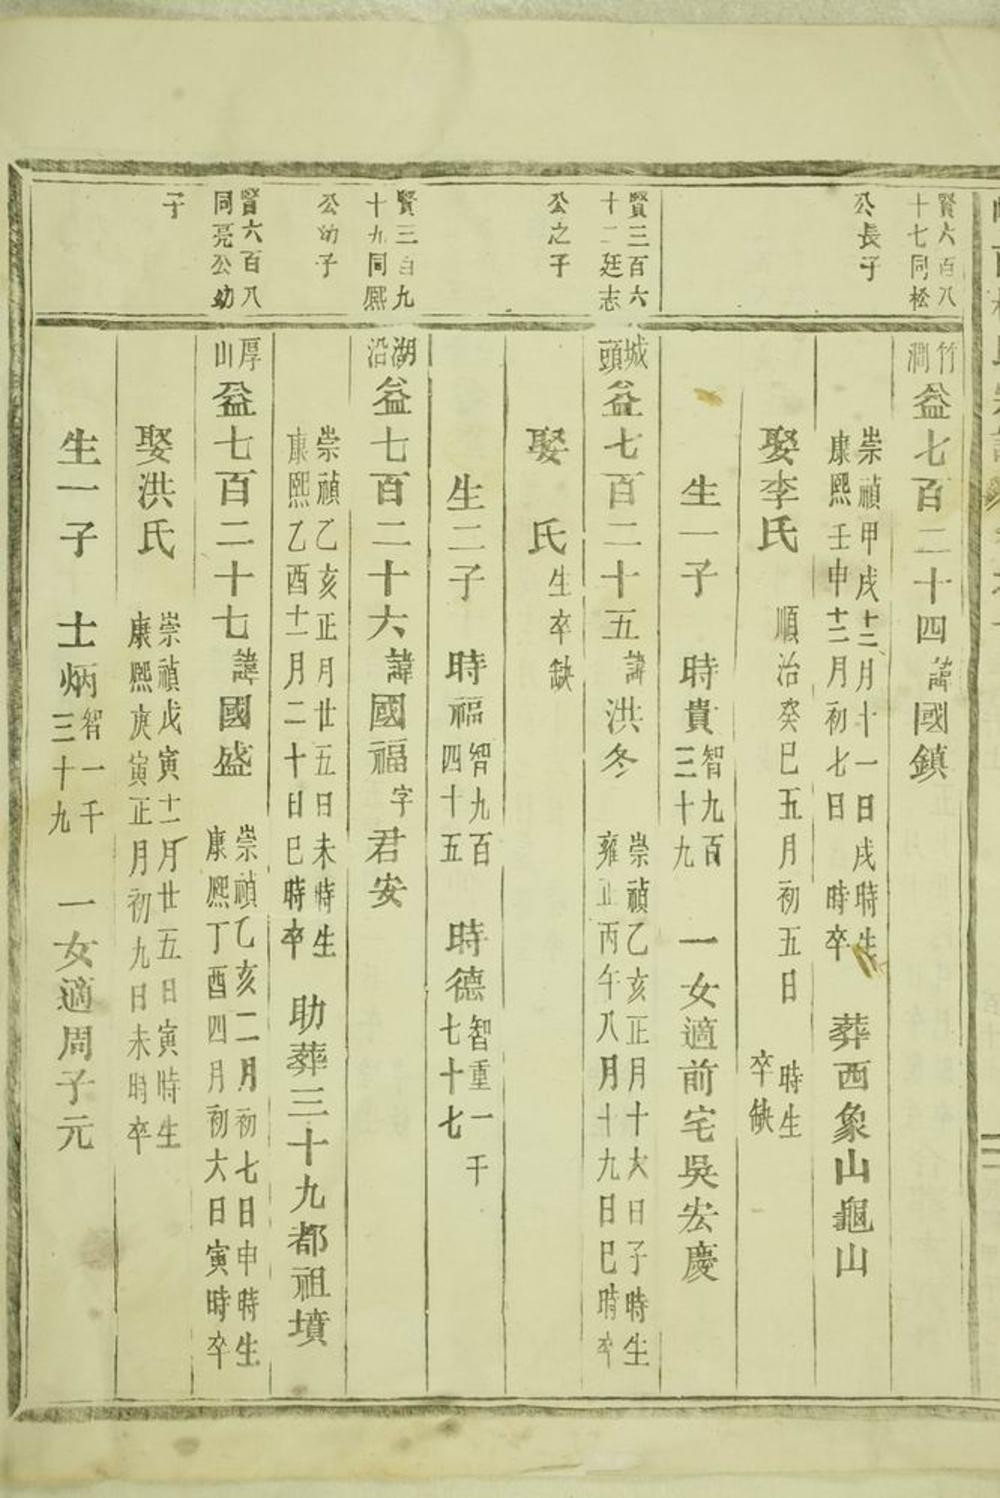 賢六百八
十七同松
公長子
竹
澗
益七百二十四諱國鎮
崇禎甲戌十二月十一日戌時生
康熙壬申十二月初七日 時卒
葬西象山龜山
娶李氏
順治癸巳五月初五日 時生
卒缺
生一子 時貴智九百三十九 一女適前宅吳宏慶
賢三百六
十二廷志
公之子
城
頭
益七百二十五諱洪冬
崇禎乙亥正月十六日子時生
雍正丙午八月十九日巳時卒
娶 氏生卒缺
生二子 時福智九百四十五 時德智重一千七十七
賢三百九
十九同熈
公幼子
湖
沿
益七百二十六諱國福字君安
崇禎乙亥正月廿五日未時生
康熙乙酉十一月二十日巳時卒
助葬三十九都祖墳
賢六百八
同亮公幼
子
厚
山
益七百二十七諱國盛
崇禎乙亥二月初七日申時生
康熈丁酉四月初六日寅時卒
娶洪氏
崇禎戊寅十二月廿五日寅時生
康熙庚寅正月初九日未時卒
生一子 士炳智一千三十九 一女適周子元